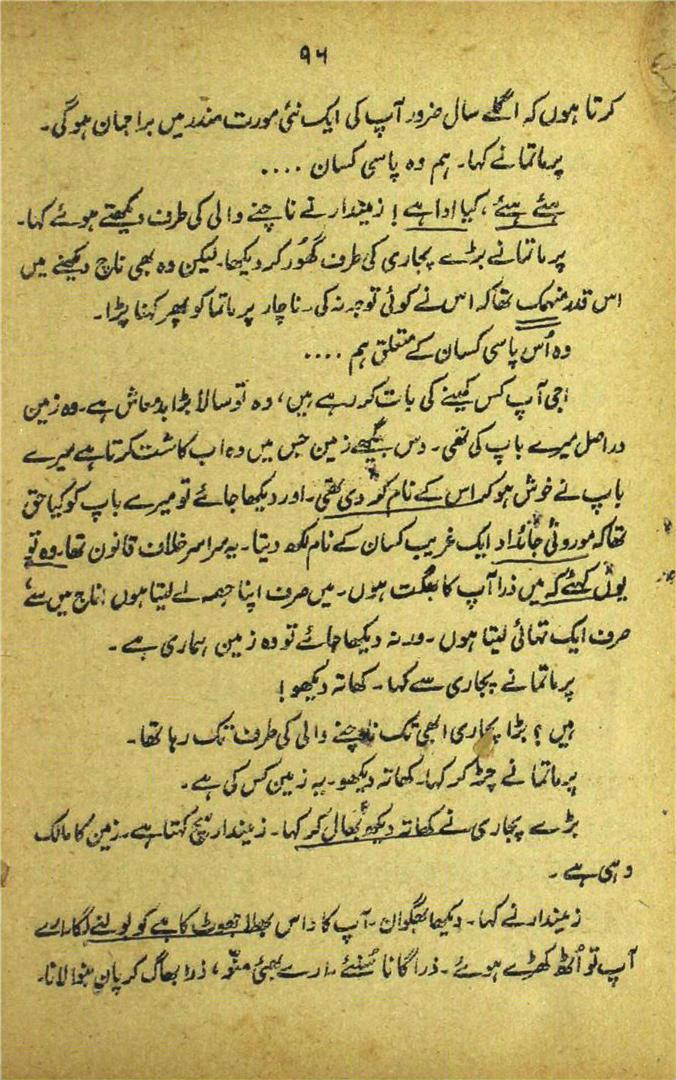 ۹۶
کرتا ہوں کہ اگلے سال ضرور آپ کی ایک نئی مورت مندر میں براجمان ہوگی۔
پرماتما نے کہا۔ ہم وہ پاسی کسان ....
ہئے ہئے، کیا ادا ہے! زمیندار نے ناچنے والی کی طرف دیکھتے ہوئے کہا۔
پرماتما نے بڑے پجاری کی طرف گھُور کر دیکھا۔ لیکن وہ بھی ناچ دیکھنے میں
اس قدر منہمک تھا کہ اس نے کوئی توجہ نہ کی۔ ناچار پرماتما کو پھر کہنا پڑا۔
وہ اُس پاسی کسان کے متعلق ہم ....
اجی آپ کس کمینے کی بات کر رہے ہیں، وہ تو سالا بڑا بدمعاش ہے۔ وہ زمین
دراصل میرے باپ کی تھی۔ دس بیگھے زمین جس میں وہ اب کاشت کرتا ہے میرے
باپ نے خوش ہو کر اس کے نام کر دی تھی۔ اور دیکھا جائے تو میرے باپ کو کیا حق
تھا کہ موروثی جائداد ایک غریب کسان کے نام لکھ دیتا۔ یہ سراسر خلاف قانون تھا۔ وہ تو
یوں کہئے کہ میں ذرا آپ کا بھگت ہوں۔ میں صرف اپنا حصہ لے لیتا ہوں اناج میں سے،
صرف ایک تہائی لیتا ہوں۔ ورنہ دیکھا جائے تو وہ زمین ہماری ہے۔
پرماتما نے پجاری سے کہا۔ کھاتہ دیکھو!
ہیں؟ بڑا پجاری ابھی تک ناچنے والی کی طرف تک رہا تھا۔
پرماتما نے چڑ کر کہا۔ کھاتہ دیکھو۔ یہ زمین کس کی ہے۔
بڑے پجاری نے کھاتہ دیکھ بھال کر کہا۔ زمیندار سچ کہتا ہے۔ زمین کا مالک
وہی ہے۔
زمیندار نے کہا۔ دیکھا بھگوان۔ آپ کا داس بھلا جھوٹ کاہے کو بولنے لگا۔ ارے
آپ تو اُٹھ کھڑے ہوئے۔ ذرا گانا سُنئے۔ ارے بھئی منّو، ذرا بھاگ کر پان بنوا لانا۔